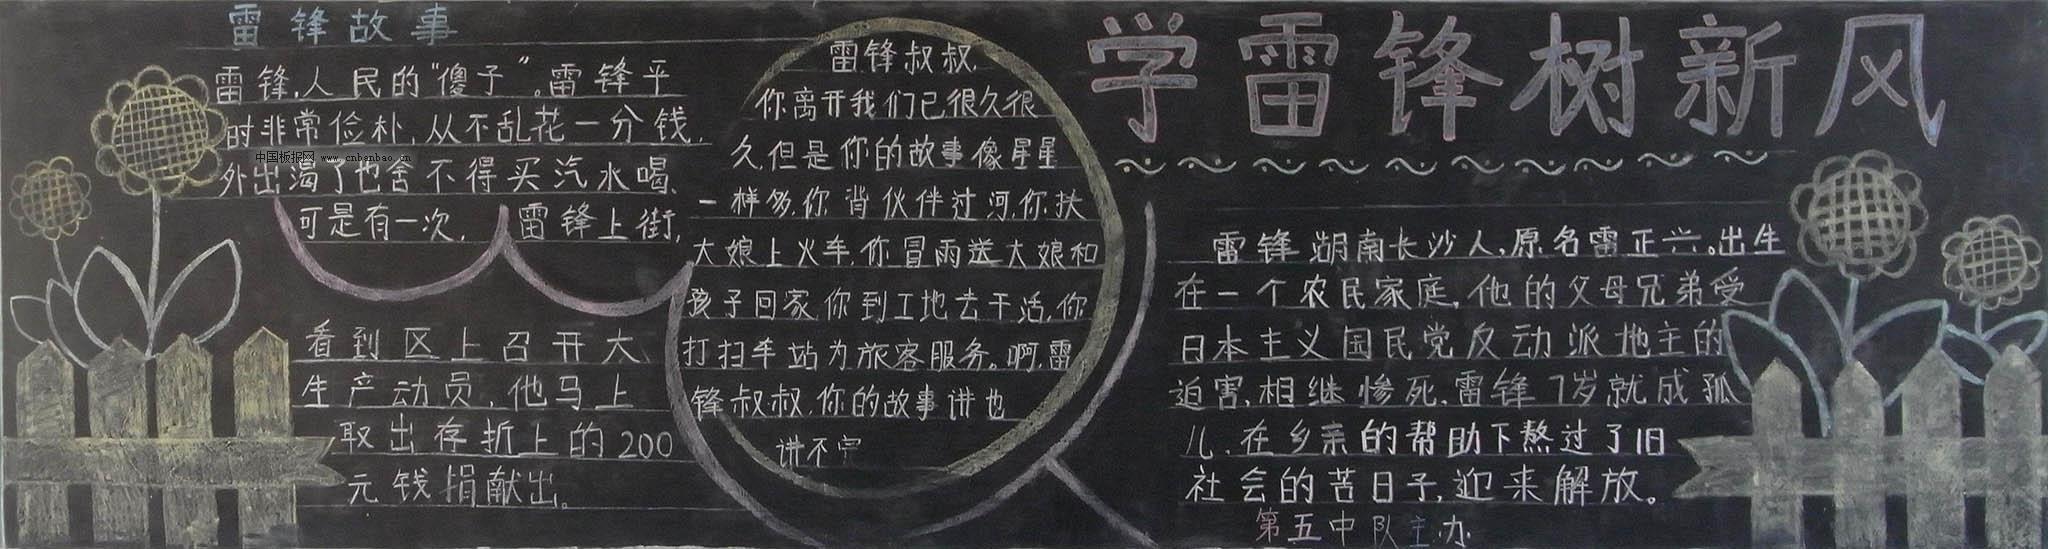 雷锋故事
雷锋,人民的“傻子”。雷锋平
时非常俭朴,从不乱花一分钱,
中国板报网 www.cnbanbao.cn
外出渴了也舍不得买汽水喝、
可是有一次,雷锋上街,
看到区上召开大
生产动员,他马上
取出存折上的200
元钱捐献出。
雷锋叔叔,
你离开我们已很久很
久,但是你的故事像星星
一样多,你背伙伴过河,你扶
大娘上火车,你冒雨送大娘和
孩子回家,你到工地去干活,你
打扫车站为旅客服务。啊,雷
锋叔叔,你的故事讲也
讲不完
学雷锋树新风
雷锋湖南长沙人,原名雷正兴。出生
在一个农民家庭,他的父母兄弟受
日本主义国民党反动派地主的
迫害,相继惨死,雷锋7岁就成孤
儿,在乡亲的帮助下熬过了旧
社会的苦日子,迎来解放。
第五中队主办